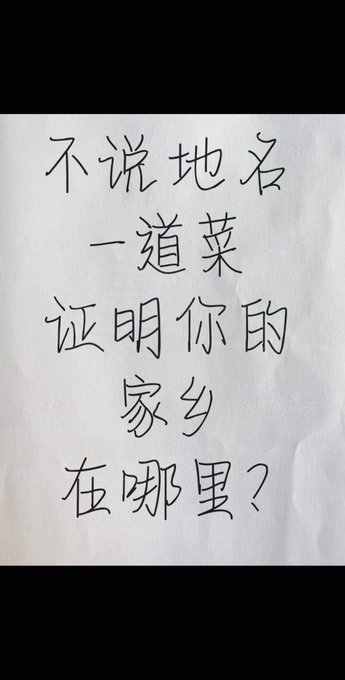 不说地名
一道菜
证明你的
家乡
在哪里?